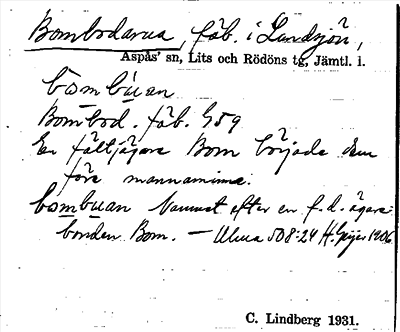 Bombodarna, fäb. i Lundsjön,
Aspås' sn, Lits och Rödöns tg, Jämtl. l.
bombuan
Bombod. fäb. G59
En fältjägare Bom började den
före mannaminne.
bombuan Namnet efter en f.d. ägare:
bonden Bom. — Ulma 508:24 H. Geijer 1906
C. Lindberg 1931.